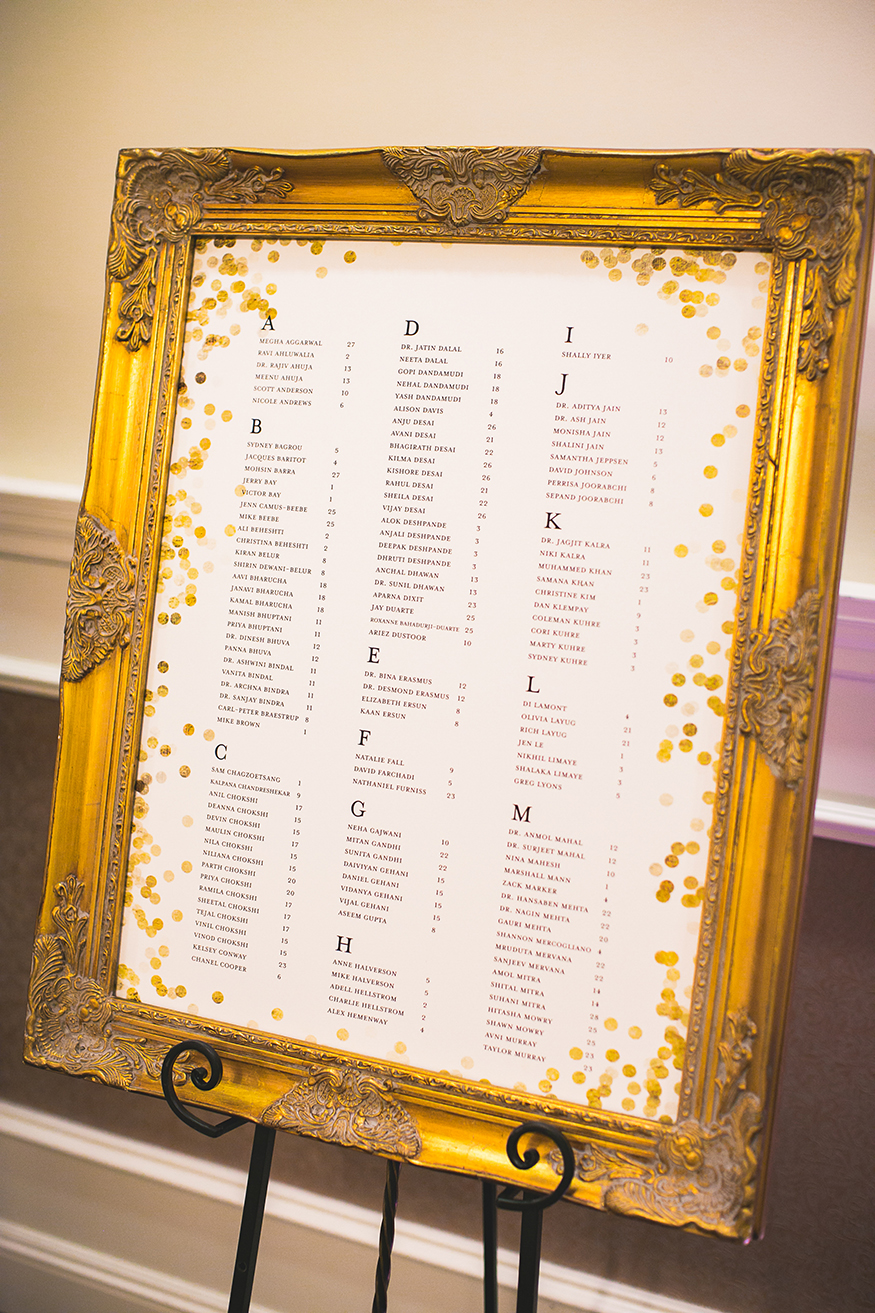 A
MEGHA AGGARWAL 27
RAVI AHLUWALIA 2
DR. RAJIV AHUJA 13
MEENU AHUJA 13
SCOTT ANDERSON 10
NICOLE ANDREWS 6
B
SYDNEY BAGROU 5
JACQUES BARITOT 4
MOHSIN BARRA 27
JERRY BAY 1
VICTOR BAY 1
JENN CAMUS-BEEBE 25
MIKE BEEBE 25
ALI BEHESHTI 2
CHRISTINA BEHESHTI 2
KIRAN BELUR 8
SHIRIN DEWANI-BELUR 8
AAVI BHARUCHA 18
JANAVI BHARUCHA 18
KAMAL BHARUCHA 18
MANISH BHUPTANI 11
PRIYA BHUPTANI 11
DR. DINESH BHUVA 12
PANNA BHUVA 12
DR. ASHWINI BINDAL 11
VANITA BINDAL 11
DR. ARCHNA BINDRA 11
DR. SANJAY BINDRA 11
CARL-PETER BRAESTRUP 8
MIKE BROWN 1
C
SAM CHAGZOETSANG 1
KALPANA CHANDRESHEKAR 9
ANIL CHOKSHI 17
DEANNA CHOKSHI 15
DEVIN CHOKSHI 15
MAULIN CHOKSHI 17
NILA CHOKSHI 15
NILIANA CHOKSHI 15
PARTH CHOKSHI 20
PRIYA CHOKSHI 20
RAMILA CHOKSHI 17
SHEETAL CHOKSHI 17
TEJAL CHOKSHI 17
VINIL CHOKSHI 15
VINOD CHOKSHI 15
KELSEY CONWAY 23
CHANEL COOPER 6
D
DR. JATIN DALAL 16
NEETA DALAL 16
GOPI DANDAMUDI 18
NEHAL DANDAMUDI 18
YASH DANDAMUDI 18
ALISON DAVIS 4
ANJU DESAI 26
AVANI DESAI 21
BHAGIRATH DESAI 22
KILMA DESAI 26
KISHORE DESAI 26
RAHUL DESAI 21
SHEILA DESAI 22
VIJAY DESAI 26
ALOK DESHPANDE 3
ANJALI DESHPANDE 3
DEEPAK DESHPANDE 3
DHRUTI DESHPANDE 3
ANCHAL DHAWAN 13
DR. SUNIL DHAWAN 13
APARNA DIXIT 23
JAY DUARTE 25
ROXANNE BAHADURJI-DUARTE 25
ARIEZ DUSTOOR 10
E
DR. BINA ERASMUS 12
DR. DESMOND ERASMUS 12
ELIZABETH ERSUN 8
KAAN ERSUN 8
F
NATALIE FALL 9
DAVID FARCHADI 5
NATHANIEL FURNISS 23
G
NEHA GAJWANI 10
MITAN GANDHI 22
SUNITA GANDHI 22
DAIVIYAN GEHANI 15
DANIEL GEHANI 15
VIDANYA GEHANI 15
VIJAL GEHANI 15
ASEEM GUPTA 8
H
ANNE HALVERSON 5
MIKE HALVERSON 5
ADELL HELLSTROM 2
CHARLIE HELLSTROM 2
ALEX HEMENWAY 4
I
SHALLY IYER 10
J
DR. ADITYA JAIN 13
DR. ASH JAIN 12
MONISHA JAIN 12
SHALINI JAIN 13
SAMANTHA JEPPSEN 5
DAVID JOHNSON 6
PERRISA JOORABCHI 8
SEPAND JOORABCHI 8
K
DR. JAGJIT KALRA 11
NIKI KALRA 11
MUHAMMED KHAN 23
SAMANA KHAN 23
CHRISTINE KIM 1
DAN KLEMPAY 9
COLEMAN KUHRE 3
CORI KUHRE 3
MARTY KUHRE 3
SYDNEY KUHRE 3
L
DI LAMONT 4
OLIVIA LAYUG 21
RICH LAYUG 21
JEN LE 1
NIKHIL LIMAYE 3
SHALAKA LIMAYE 3
GREG LYONS 5
M
DR. ANMOL MAHAL 12
DR. SURJEET MAHAL 12
NINA MAHESH 10
MARSHALL MANN 1
ZACK MARKER 4
DR. HANSABEN MEHTA 22
DR. NAGIN MEHTA 22
GAURI MEHTA 20
SHANNON MERCOGLIANO 4
MRUDUTA MERVANA 22
SANJEEV MERVANA 22
AMOL MITRA 14
SHITAL MITRA 14
SUHANI MITRA 28
HITASHA MOWRY 25
SHAWN MOWRY 25
AVNI MURRAY 23
TAYLOR MURRAY 23